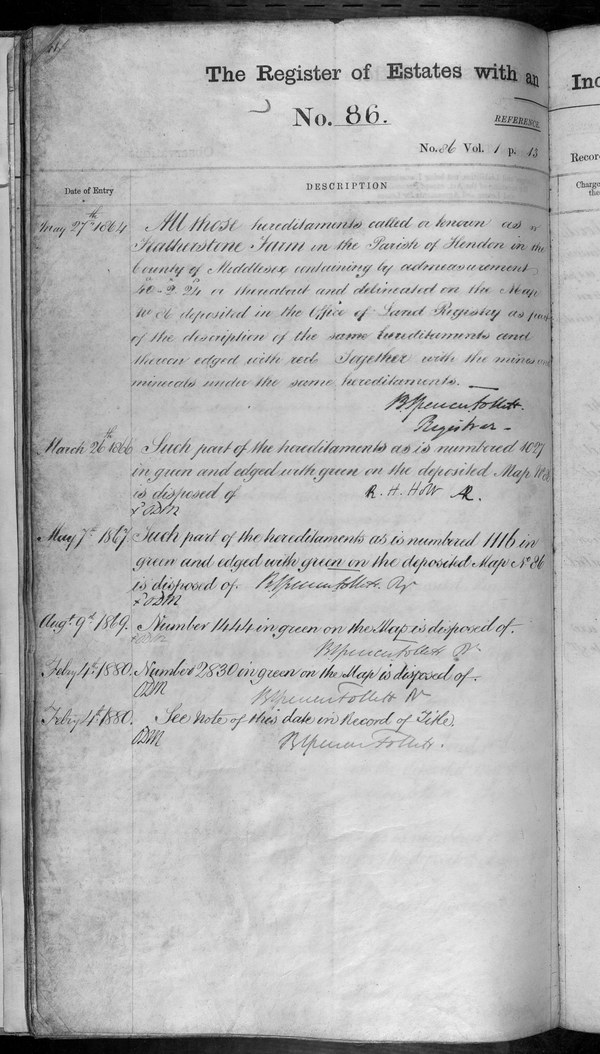 The Register of Estates with an
No. 86.
REFERENCE.
No. 86 Vol. 1 p. 13
Date of Entry
DESCRIPTION
May 27th 1864
All those hereditaments called or known as
Featherstone Farm in the Parish of Hendon in the
County of Middlesex containing by admeasurement
40 - 2. 24 or thereabout and delineated on the Map
No 86 deposited in the Office of Land Registry as part
of the description of the same hereditaments and
thereon edged with red Together with the mines and
minerals under the same hereditaments.
B Spencer Follett.
Registrar
March 26th 1866
Such part of the hereditaments as is numbered 1027
in green and edged with green on the deposited Map No 86
is disposed of
R. H. HOW AR.
ODM
May 7th 1867
Such part of the hereditaments as is numbered 1116 in
green and edged with green on the deposited Map No 86
is disposed of. B Spencer Follett. Rr
ODM
Augt 9th 1869.
Number 1444 in green on the Map is disposed of.
B Spencer Follett Rr
Feby 4th 1880.
Number 2830 in green on the Map is disposed of.
ODM
B Spencer Follett Rr
Feby 4th 1880.
See Note of this date in Record of Title.
ODM
B Spencer Follett.
Inc
Record
Charge
the